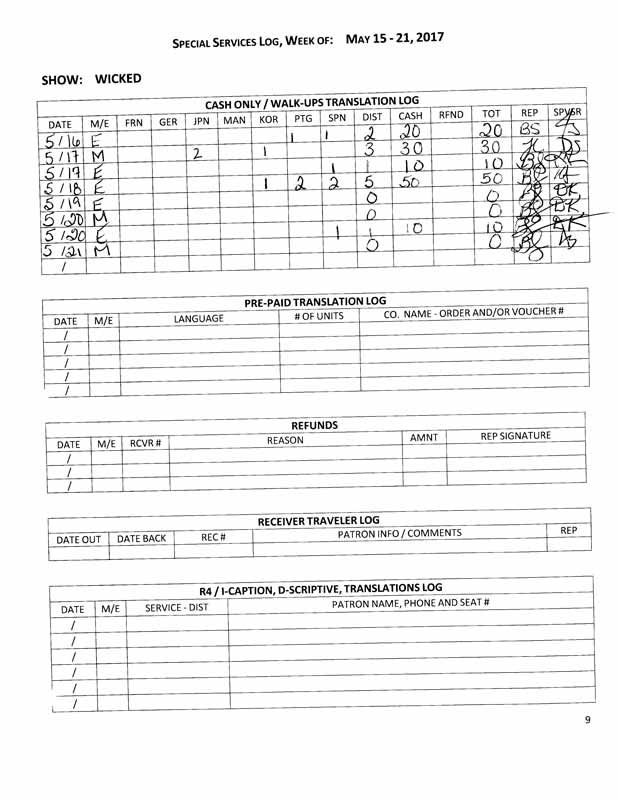 SPECIAL SERVICES LOG, WEEK OF: MAY 15 - 21, 2017
SHOW: WICKED
CASH ONLY / WALK-UPS TRANSLATION LOG
DATE M/E FRN GER JPN MAN KOR PTG SPN DIST CASH RFND TOT REP SPVSR
5/16 E 1 1 2 20 20 BS
5/17 M 2 1 3 30 30 DS
5/17 E 1 1 10 10
5/18 E 1 2 2 5 50 50
5/19 E 0 0 BK
5/20 M 0 0 BK
5/20 E 1 1 10 10
5/21 M 0 0
/
PRE-PAID TRANSLATION LOG
DATE M/E LANGUAGE # OF UNITS CO. NAME - ORDER AND/OR VOUCHER #
/
/
/
/
/
REFUNDS
DATE M/E RCVR # REASON AMNT REP SIGNATURE
/
/
/
RECEIVER TRAVELER LOG
DATE OUT DATE BACK REC # PATRON INFO / COMMENTS REP
R4 / I-CAPTION, D-SCRIPTIVE, TRANSLATIONS LOG
DATE M/E SERVICE - DIST PATRON NAME, PHONE AND SEAT #
/
/
/
/
/
/
9